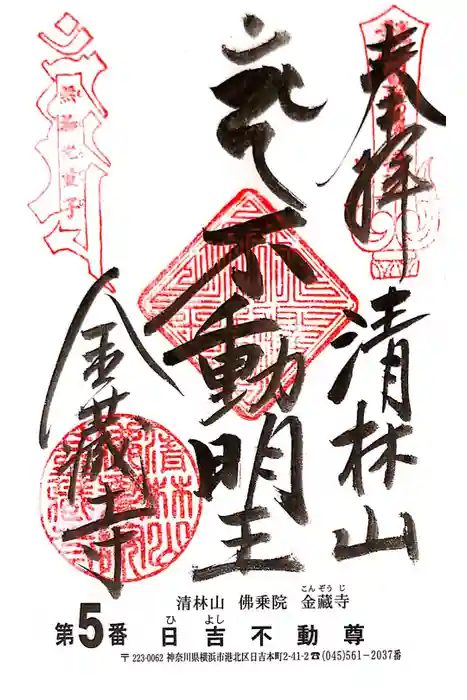 奉拝
清林山
不動明王
金蔵寺
清林山 佛乗院 金藏寺
こんぞうじ
第5番 日吉不動尊
ひよし
〒223-0062 神奈川県横浜市港北区日吉本町2-41-2☎(045)561-2037番